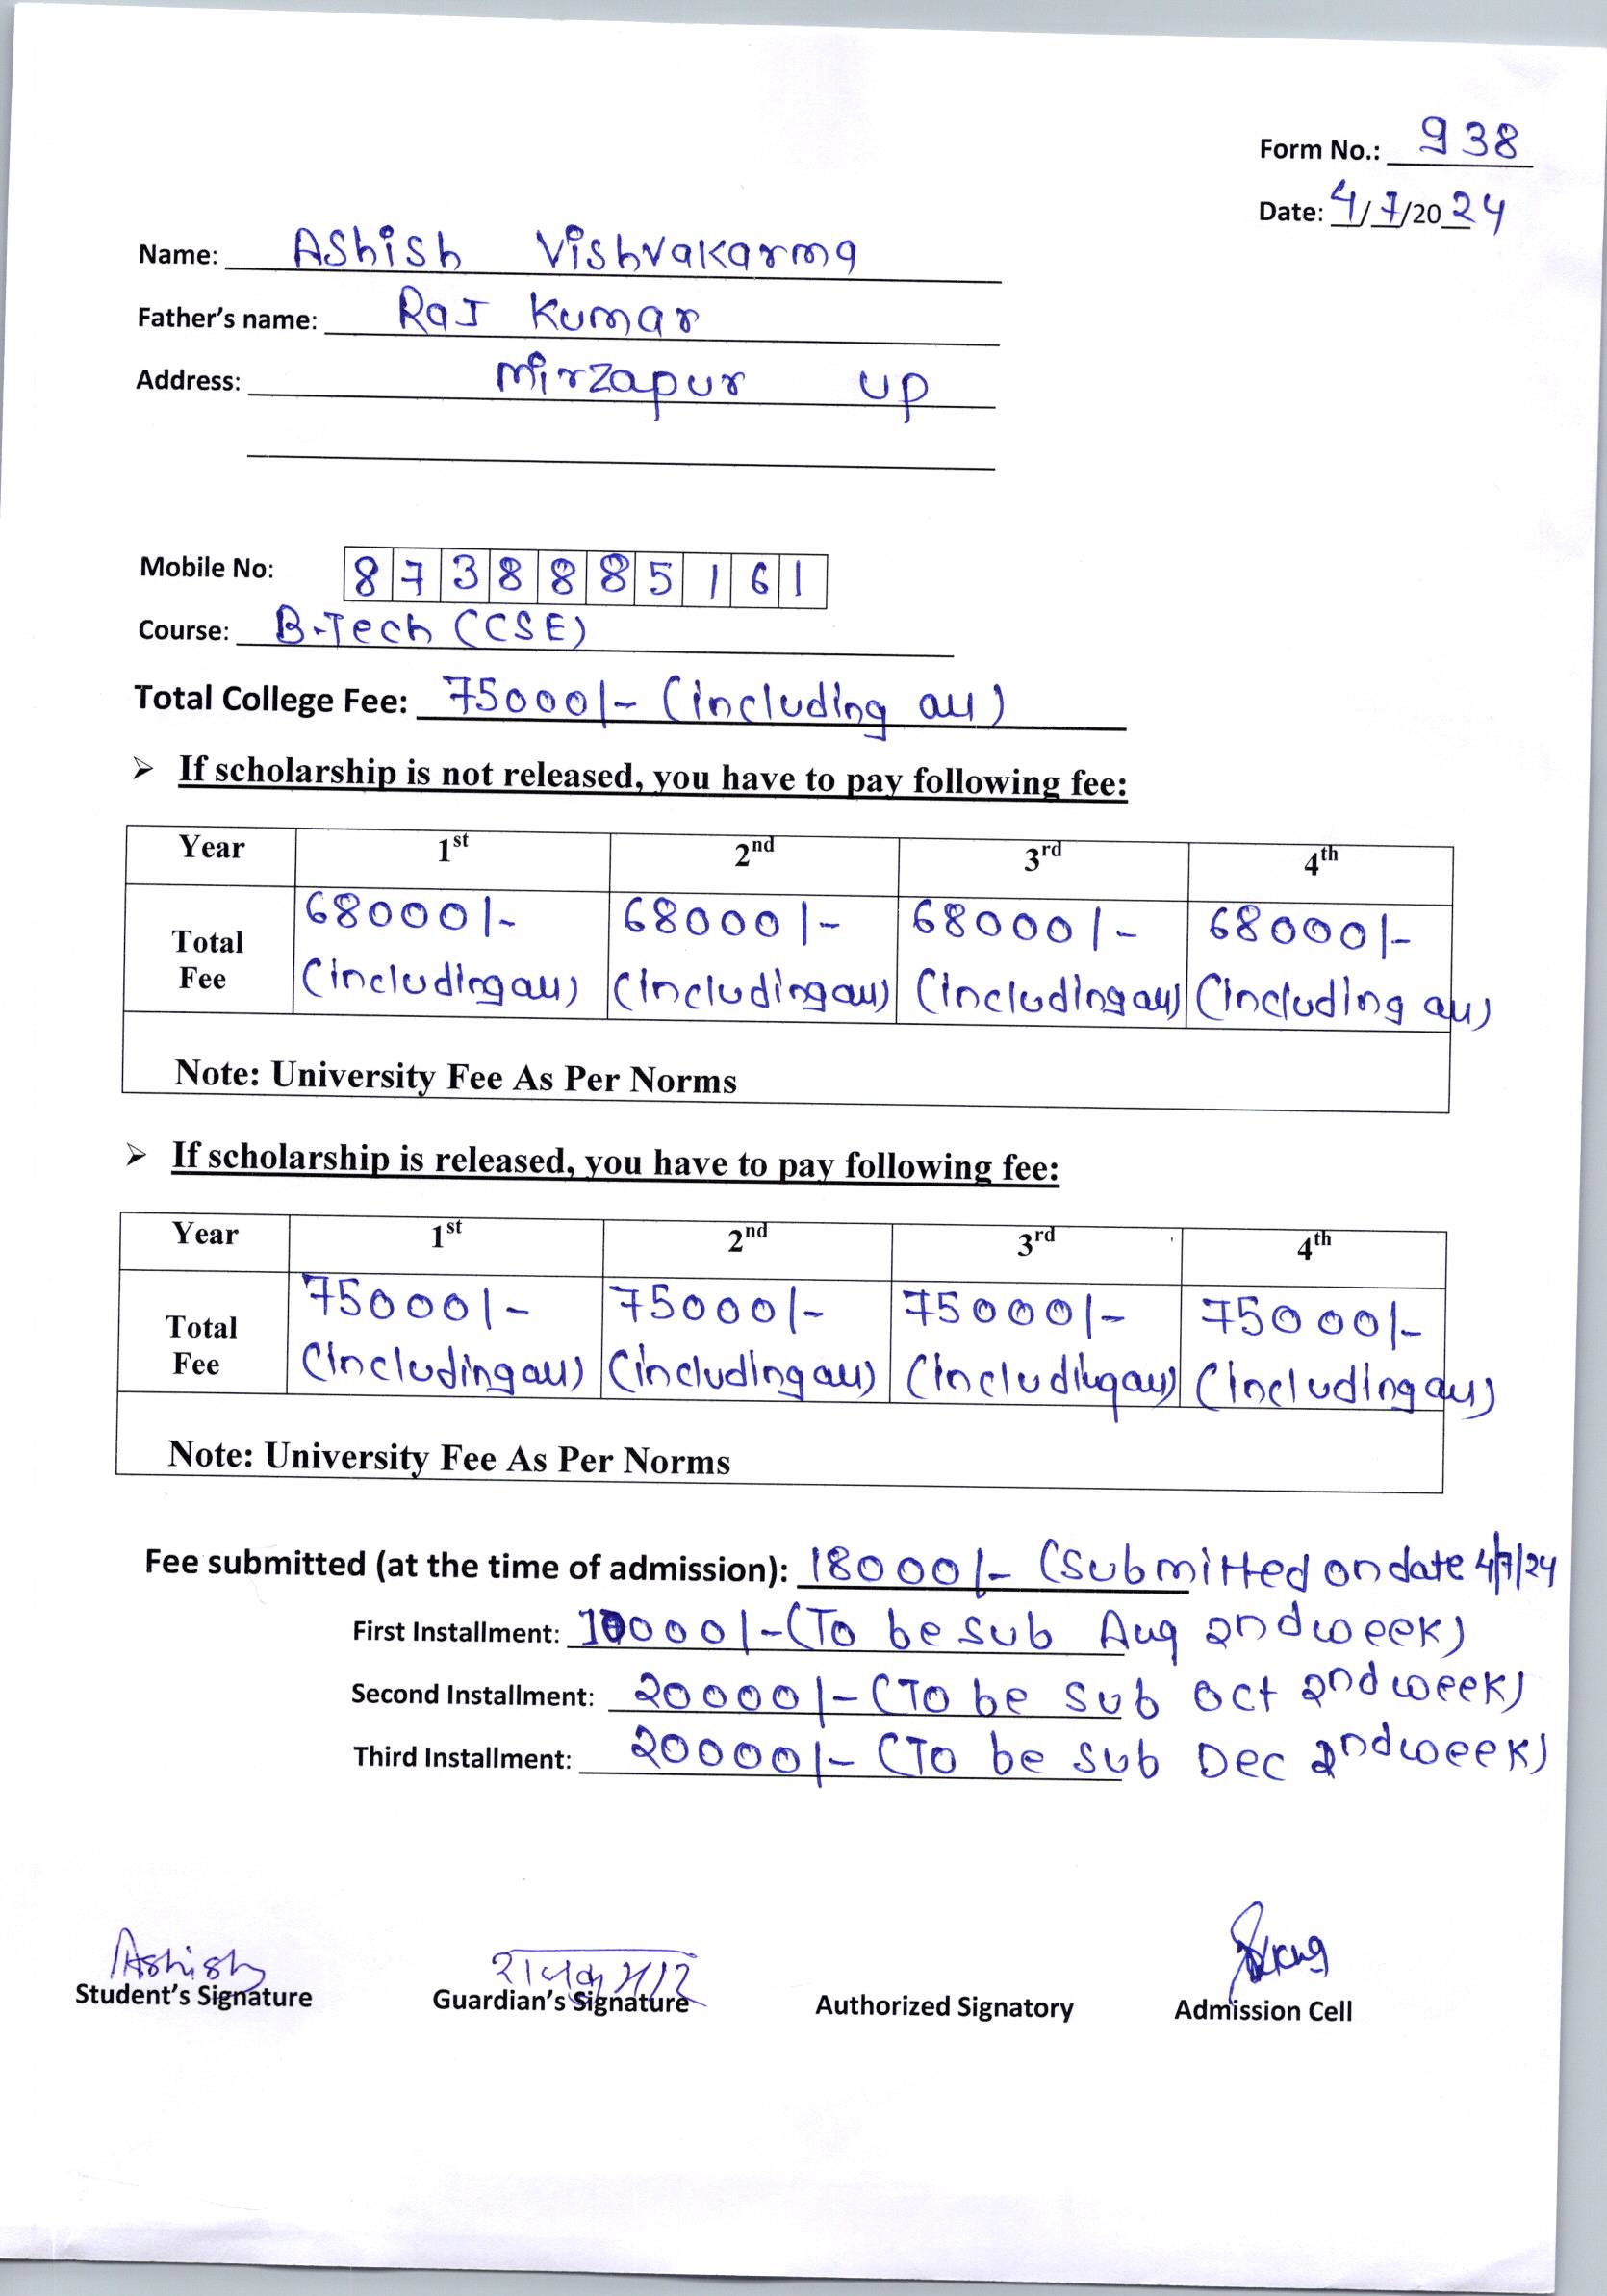 Form No.: 938
Date: 4/7/2024
Name: Ashish Vishvakarma
Father's name: Raj Kumar
Address: Mirzapur UP
Mobile No: 8738885161
Course: B.Tech (CSE)
Total College Fee: 75000/- (including all)
➢ If scholarship is not released, you have to pay following fee:
Year 1st 2nd 3rd 4th
Total Fee 68000/- (including all) 68000/- (including all) 68000/- (including all) 68000/- (including all)
Note: University Fee As Per Norms
➢ If scholarship is released, you have to pay following fee:
Year 1st 2nd 3rd 4th
Total Fee 75000/- (including all) 75000/- (including all) 75000/- (including all) 75000/- (including all)
Note: University Fee As Per Norms
Fee submitted (at the time of admission): 18000/- (submitted on date 4/7/24
First Installment: 10000/- (To be sub Aug 2nd week)
Second Installment: 20000/- (To be sub Oct 2nd week)
Third Installment: 20000/- (To be sub Dec 2nd week)
Ashish राजकुमार
Student's Signature Guardian's Signature Authorized Signatory Admission Cell